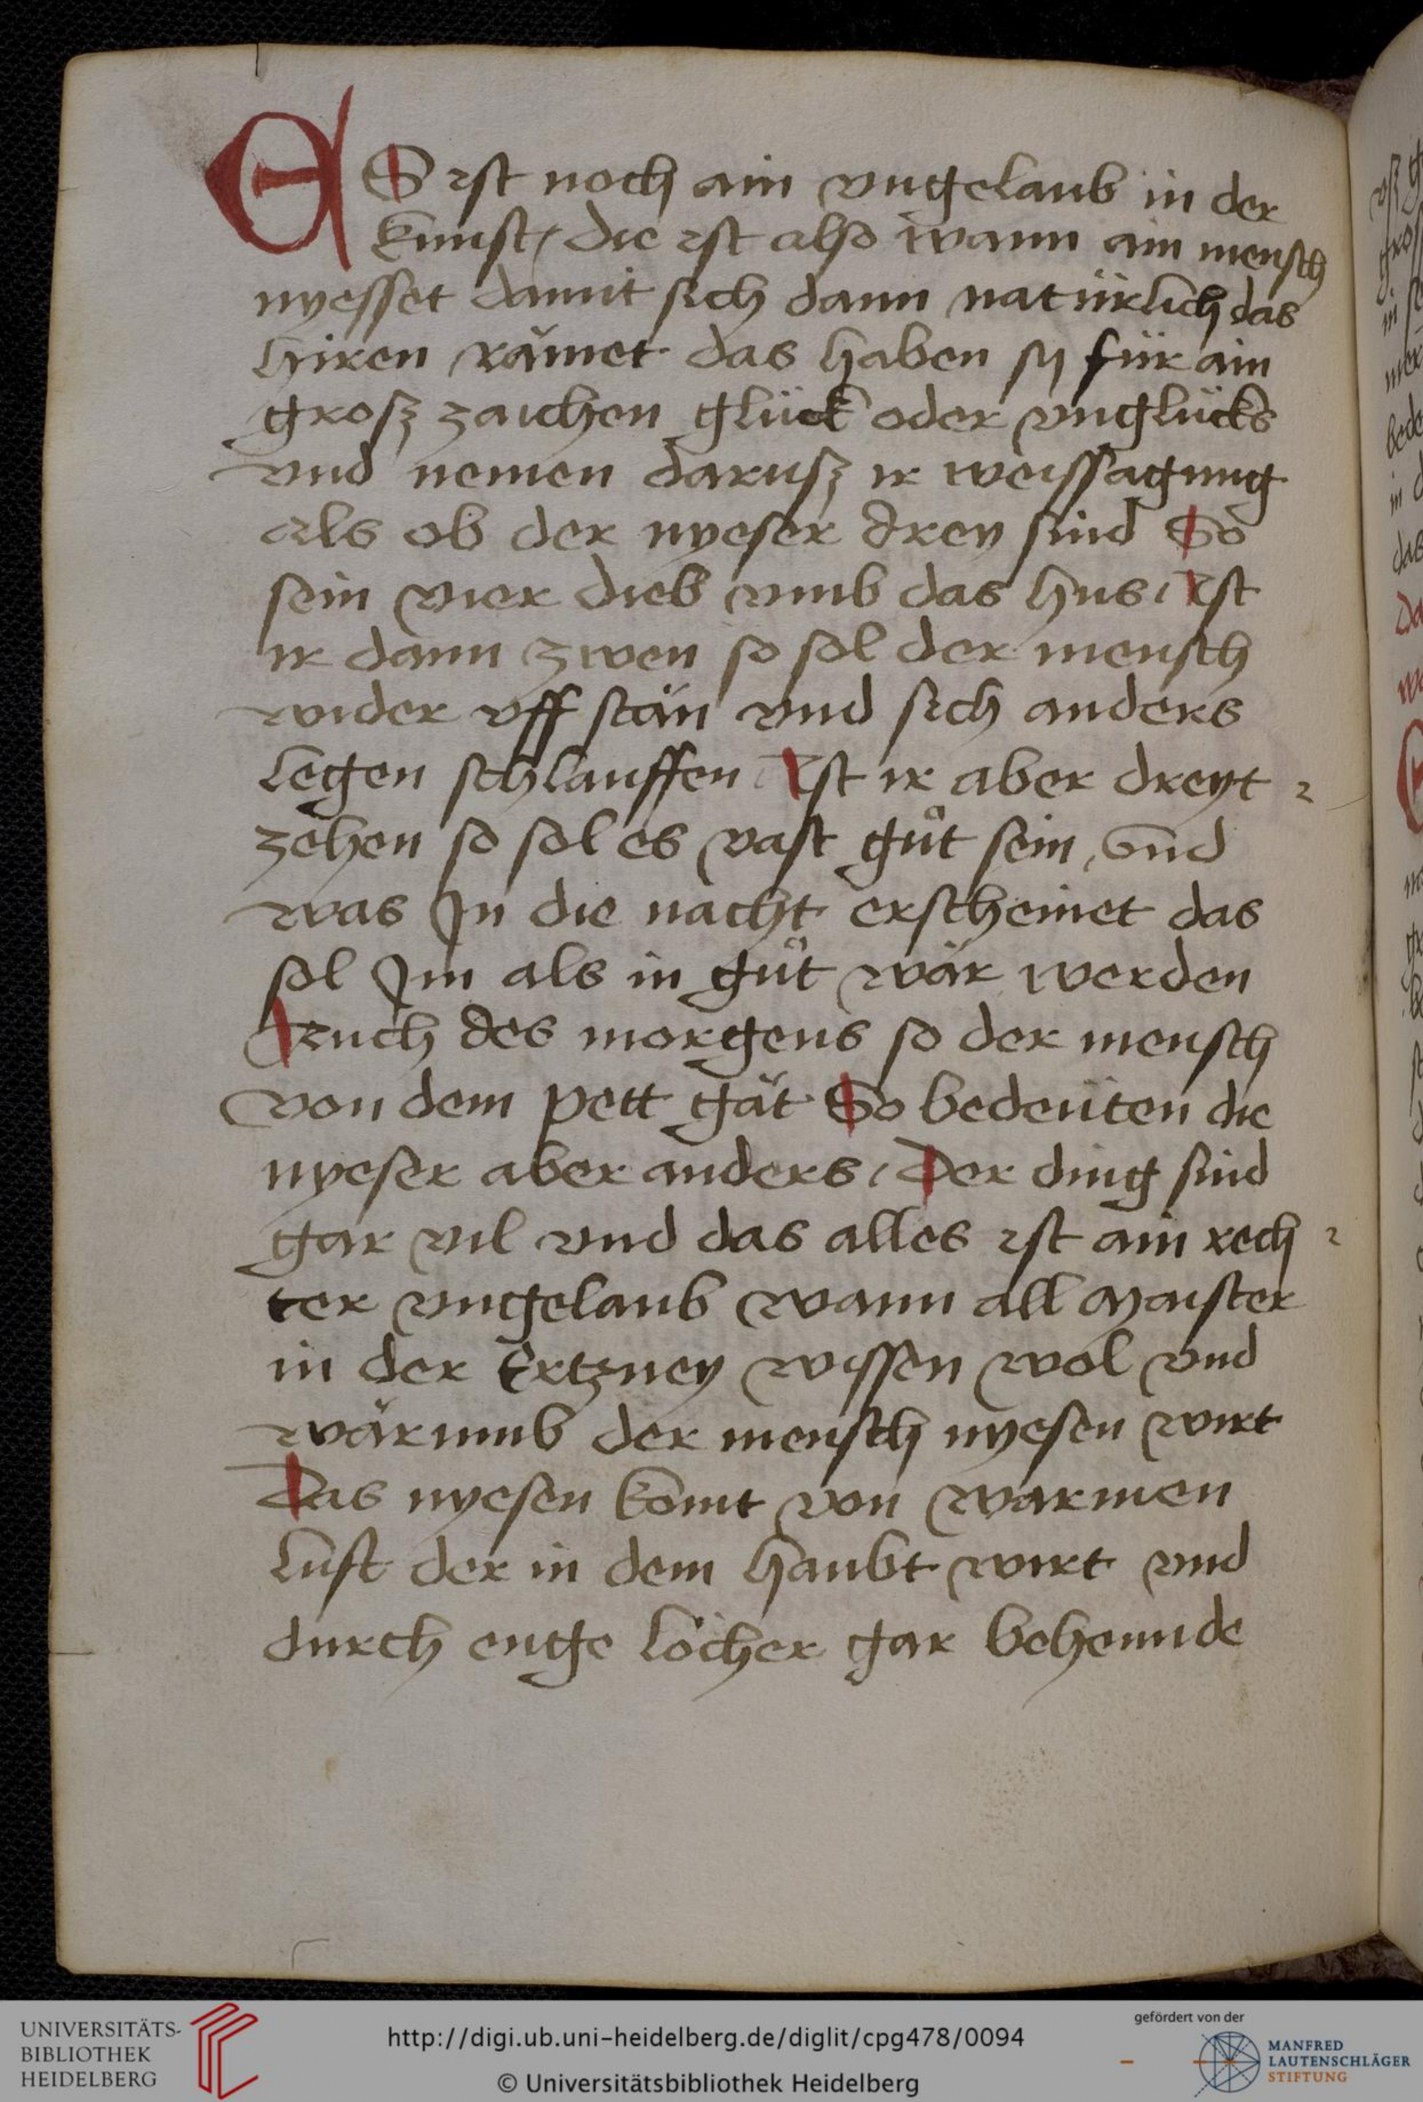 ES ist noch ain vngelaub in der
kunst / die ist also wann ain mensch
nyesset damit sich dann natürlich das
hiren rämet das haben sy für ain
grosz zaichen glück oder vnglücks
vnd nemen darusz ir weissagung
als ob der nyeser drey sind So
sein vier dieb vmb das hus / Ist
ir dann zwen so sol der mensch
wider vff stän vnd sich anders
legen schlauffen Ist ir aber dreyt
zehen so sol es vast gůt sein, Vnd
was Jn die nacht erscheinet das
sol Jm als in gůt wär werden
Auch des morgens so der mensch
von dem pett gät So bedeüten die
nyeser aber anders / Der ding sind
gar vil vnd das alles ist ain rech
ter vngelaub wann all Maister
in der Ertzney wissen wol vnd
wärumb der mensch nyesen wirt
Das nyesen komt von warmen
luft der in dem haubt wirt vnd
durch enge löcher gar behennde
UNIVERSITÄTS-
BIBLIOTHEK
HEIDELBERG
http://digi.ub.uni-heidelberg.de/diglit/cpg478/0094
© Universitätsbibliothek Heidelberg
gefördert von der
MANFRED
LAUTENSCHLÄGER
STIFTUNG